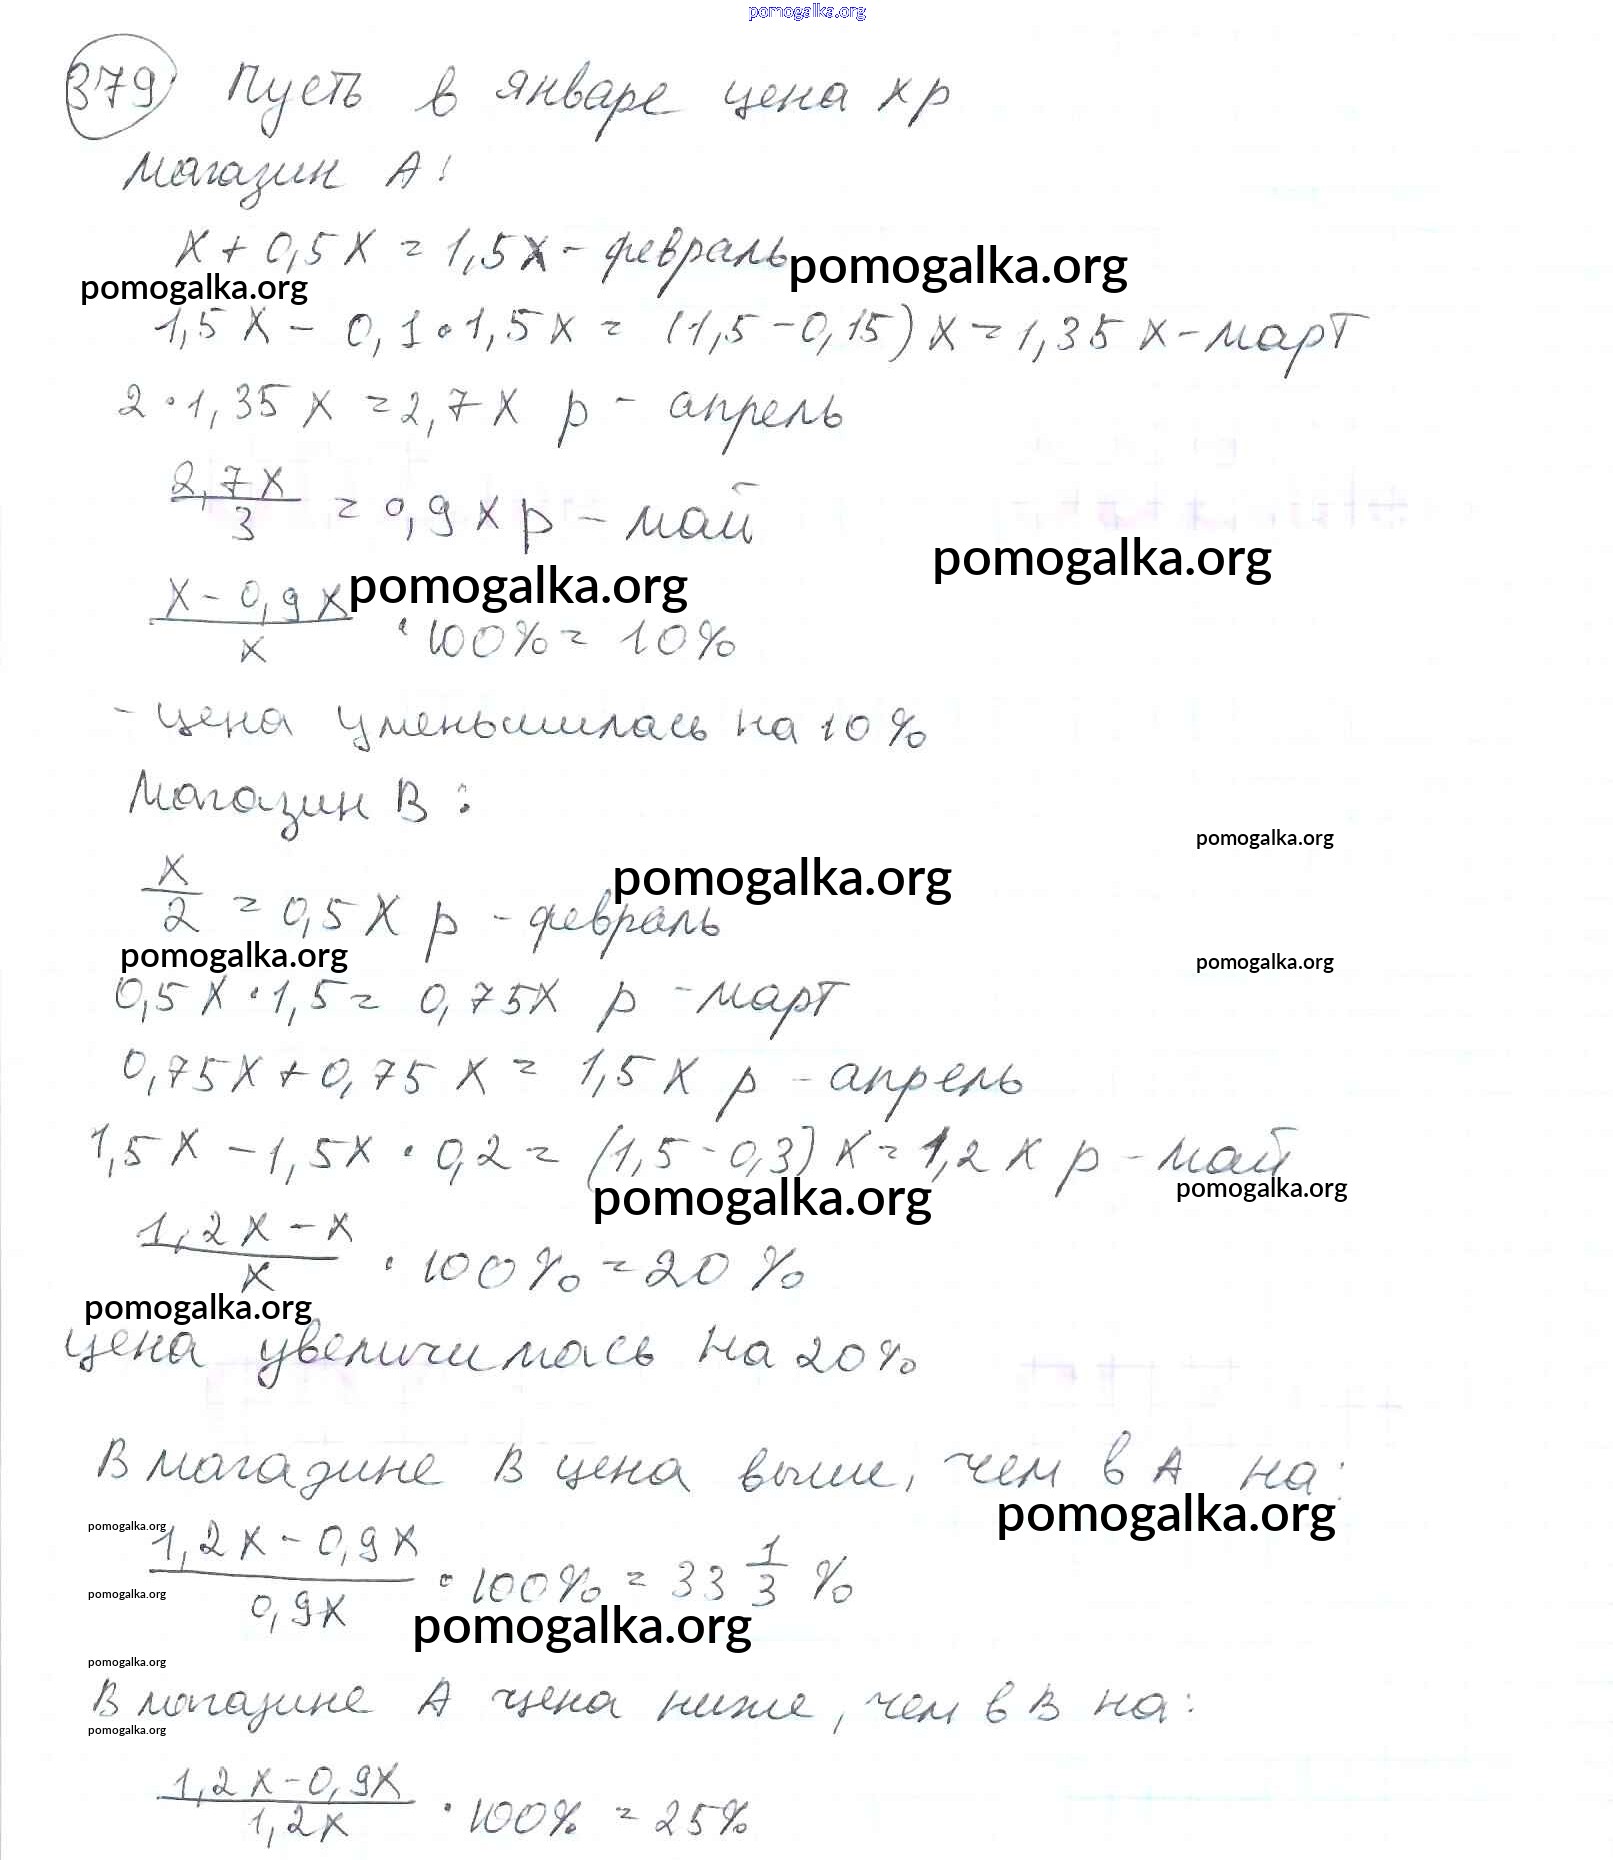 pomogalka.org
379 Пусть в январе цена x р
Магазин А:
x + 0,5x = 1,5x - февраль
pomogalka.org
pomogalka.org
1,5x - 0,1 • 1,5x = (1,5 - 0,15)x = 1,35x - март
2 • 1,35x = 2,7x р - апрель
2,7x/3 = 0,9x р - май
pomogalka.org
pomogalka.org
x - 0,9x/x • 100% = 10%
- цена уменьшилась на 10%
Магазин В:
pomogalka.org
pomogalka.org
x/2 = 0,5x р - февраль
pomogalka.org
pomogalka.org
0,5x • 1,5 = 0,75x р - март
0,75x + 0,75x = 1,5x р - апрель
1,5x - 1,5x • 0,2 = (1,5 - 0,3)x = 1,2x р - май
pomogalka.org
pomogalka.org
1,2x - x/x • 100% = 20%
pomogalka.org
цена увеличилась на 20%
В магазине В цена выше, чем в А на:
pomogalka.org
pomogalka.org
1,2x - 0,9x/0,9x • 100% = 33 1/3 %
pomogalka.org
pomogalka.org
pomogalka.org
В магазине А цена ниже, чем в В на:
pomogalka.org
1,2x - 0,9x/1,2x • 100% = 25%